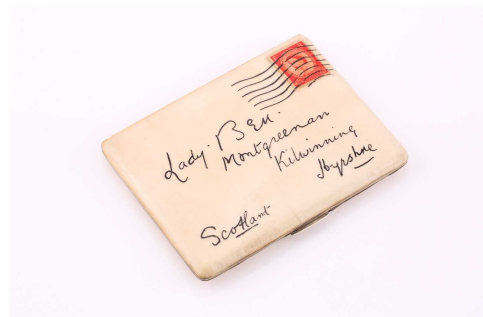 Lady. Bell.
Montgreenan
Kilwinning
Ayrshire
Scotland